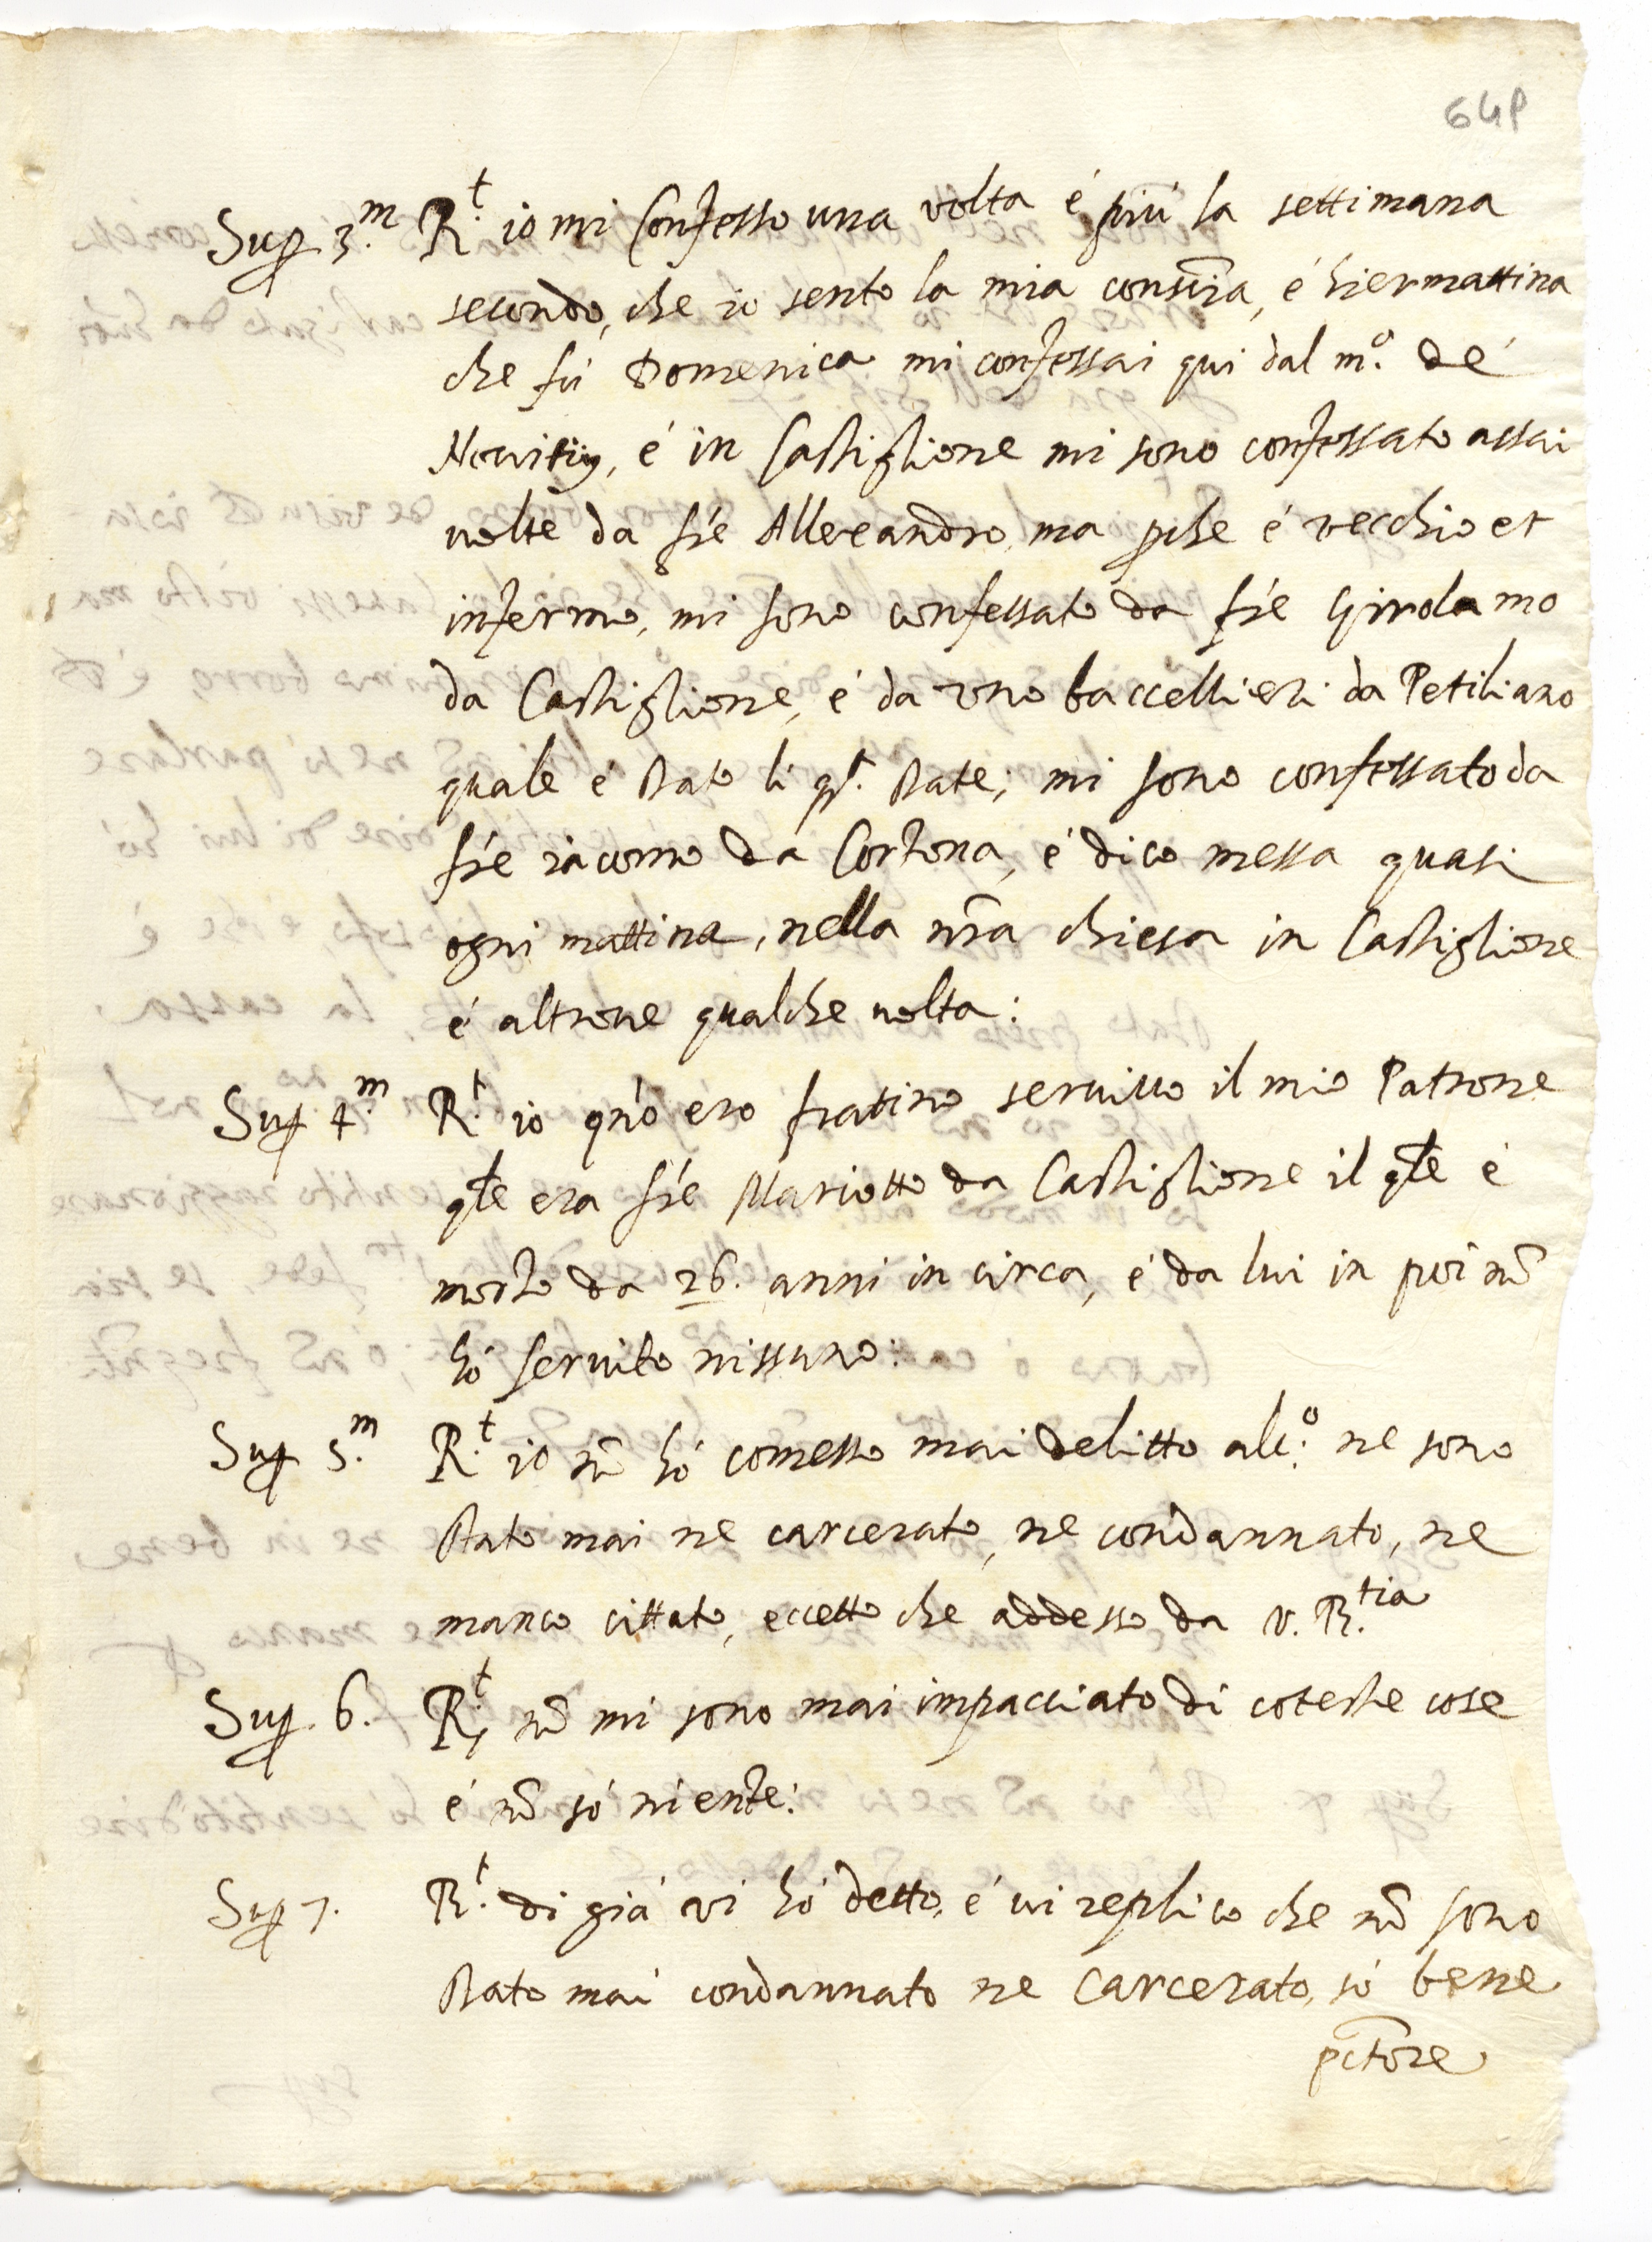 649
Sup. 3.m R.t io mi Confesso una volta é piú la settimana
secondo, che io sento la mia consc̃ia, é hiermattina
che fú Domenica mi confessai qui dal m.o de'
Novitij, é in Castiglione mi sono confessato assai
volte da fr̃e Allexandro, ma p̱che é vecchio et
infermo, mi sono confessato da fr̃e Girolamo
da Castiglione, é da uno baccellieri da Petiliano
quale é stato lí q.ta state; mi sono confessato da
fr̃e iacomo da Cortona, é dico messa quasi
ogni mattina, nella nr̃a chiesa in Castiglione
é altrove qualche volta:
Sup. 4.m R.t io qñ̃o ero fratino servivo il mio Patrone
q̃le era fr̃e Mariotto da Castiglione il q̃le é
morto da 26. anni in circa, é da lui in poi nõ
hó servito nissuno:
Sup. 5.m R.t io nõ hó comesso mai delitto alc.o ne sono
stato mai ne carcerato, ne condannato, ne
manco cittato, eccetto che addesso da V. R.tia
Sup. 6. R.t nõ mi sono mai impacciato di coteste cose
é nõ só niente:
Sup. 7. R.t di giá vi hó detto, é vi replico che nõ sono
stato mai condannato ne carcerato, só bene
pct̃ore